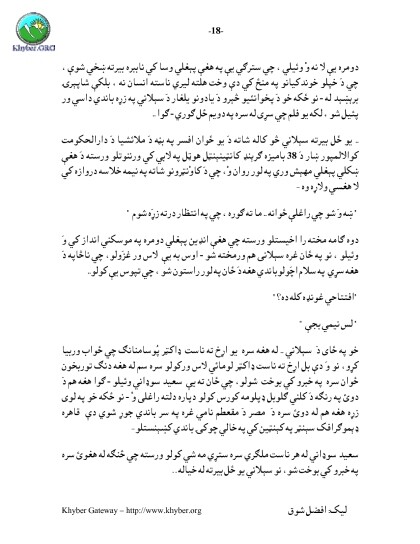 -18-
Khyber.ORG
دومره يې لا نه وْ وئيلي ، چي سترګي يې په هغې پېغلي وسا کي نابېره بيرته ښخي شوې ،
چي دَ خپلو خوندکيانو په منځ کي دې وخت هلته ليري ناسته انسان نه ، بلکې شاپېرۍ
برېښېد له - نو ځکه خو دَ پخوانئيو څېرو دَ يادونو يلغار دَ سېلاني په زړه باندي داسي ور
پئيل شو ، لکه يو فلم چي سړی له سره په دويم ځل ګوري - ګوا --
ـ يو ځل بيرته سېلاني خو کاله شاته دَ يو ځوان افسر په بڼه دَ ملائشيا دَ دارالحکومت
کوالالمپور ښار دَ 38 باميزه ګرېنډ کانټينېنټل هوټل په لابي کي ورننوتلو ورسته دَ هغې
ښکلي پېغلي مهېش وري په لور روان وْ ، چي دَ کاوْنټرونو شاته په نيمه خلاسه دروازه کي
لا هغسي ولاړه وه -
" ښه وَ شو چي راغلې ځوانه ـ ما ته ګوره ، چي په انتظار درته زړه شوم "
دوه ګامه مخته را اخيستلو ورسته چي هغې انډين پېغلي دومره په موسکني انداز کي وَ
وئيلو ، نو په ځان غره سېلاني هم ورمخته شو - اوس به يې لاس ور غزولو ، چي ناڅاپه دَ
هغه سړي په سلام اچولو باندي هغه دَ ځان په لور راستون شو ، چي تپوس يې کولو ـ
"افتتاحي غونډه کله ده؟"
"لس نيمي بجې "
خو په ځای دَ سېلاني ـ له هغه سره يو اړخ ته ناست ډاکټر پُوسامنانګ چي ځواب وربيا
کړو ، نو وَ دې بل اړخ ته ناست ډاکټر لومائي لاس ورکولو سره سم له هغه دنګ توربخون
ځوان سره په خبرو کي بوخت شولو ، چي ځان ته يې سعيد سوډاني وئيلو - ګوا هغه هم دَ
دوئ په رنګه دَ کلني ګلوبل ډپلومه کورس کولو دپاره دلته راغلی وْ - نو ځکه خو په لوی
زړه هغه هم له دوئ سره دَ مصر دَ مقعطم نامي غره په سر باندي جوړ شوي دې قاهره
ډېموګرافک سېنټر په کېنټين کي په خالي چوکۍ باندي کښېنستلو -
سعيد سوډاني له هر ناست ملګري سره ستړي مه شي کولو ورسته چي څنګه له هغوئ سره
په خبرو کي بوخت شو ، نو سېلاني يو ځل بيرته له خياله ..
ليک: افضل شوق
Khyber Gateway – http://www.khyber.org